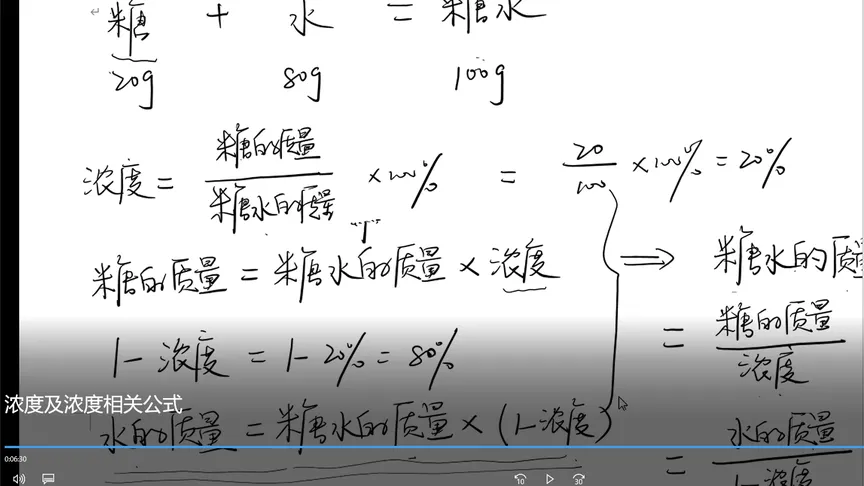 糖 + 水 = 糖水
20g 80g 100g
浓度 = 糖的质量 / 糖水的质量 ×100% = 20/100 ×100% = 20%
糖的质量 = 糖水的质量 × 浓度 ⇒ 糖水的质量
= 糖的质量 / 浓度
1-浓度 = 1-20% = 80%
浓度及浓度相关公式
水的质量 = 糖水的质量 × (1-浓度)
= 水的质量 / 1-浓度
0:06:30
10 30